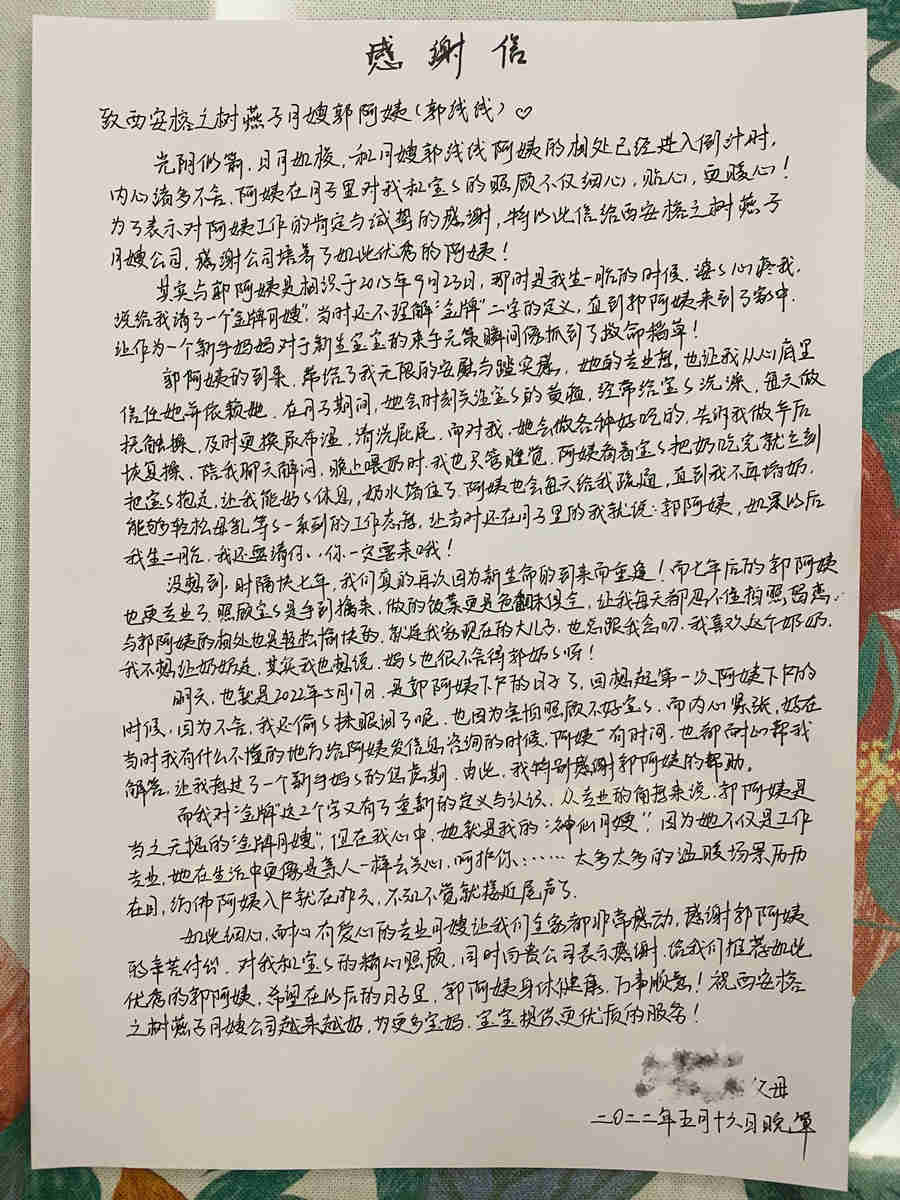 感谢信
致西安榕之树燕子月嫂郭阿姨（郭线线）♡
光阴似箭，日月如梭，和月嫂郭线线阿姨的相处已经进入倒计时，
内心诸多不舍。阿姨在月子里对我和宝宝的照顾不仅细心，贴心，更暖心！
为了表示对阿姨工作的肯定与诚挚的感谢，特以此信给西安榕之树燕子
月嫂公司，感谢公司培养了如此优秀的阿姨！
其实与郭阿姨是相识于2015年9月23日，那时是我生一胎的时候，婆婆心疼我，
说给我请了一个“金牌月嫂”，当时还不理解“金牌”二字的定义，直到郭阿姨来到了家中，
让作为一个新手妈妈对于新生宝宝的束手无策瞬间像抓到了救命稻草！
郭阿姨的到来，带给了我无限的安慰与踏实感，她的专业度，也让我从心底里
信任她并依赖她。在月子期间，她会时刻关注宝宝的黄疸，经常给宝宝洗澡，每天做
抚触操，及时更换尿布湿，清洗屁屁。而对我，她会做各种好吃的，告诉我做产后
恢复操，陪我聊天解闷，晚上喂奶时，我也只管睡觉，阿姨看着宝宝把奶吃完就立刻
把宝宝抱走，让我能好好休息，奶水堵住了，阿姨也会每天给我疏通，直到我不再堵奶，
能够轻松母乳等等一系列的工作态度，让当时还在月子里的我就说：郭阿姨，如果以后
我生二胎，我还要请你，你一定要来哦！
没想到，时隔快七年，我们真的再次因为新生命的到来而重逢！而七年后的郭阿姨
也更专业了，照顾宝宝是手到擒来，做的饭菜更是色香味俱全，让我每天都忍不住拍照留念，
与郭阿姨的相处也是轻松愉快的，就连我家现在的大儿子，也总跟我念叨，我喜欢这个奶奶，
我不想让奶奶走，其实我也想说，妈妈也很不舍得郭奶奶呀！
明天，也就是2022年5月17日，是郭阿姨下户的日子了，回想起第一次阿姨下户的
时候，因为不舍，我还偷偷抹眼泪了呢，也因为害怕照顾不好宝宝，而内心紧张，好在
当时我有什么不懂的地方给阿姨发信息咨询的时候，阿姨一有时间，也都耐心帮我
解答，让我度过了一个新手妈妈的焦虑期，由此，我特别感谢郭阿姨的帮助。
而我对“金牌”这2个字又有了重新的定义与认识，从专业的角度来说，郭阿姨是
当之无愧的“金牌月嫂”，但在我心中，她就是我的“神仙月嫂”，因为她不仅是工作
专业，她在生活中更像是亲人一样去关心，呵护你……太多太多的温暖场景历历
在目，仿佛阿姨入户就在昨天，不知不觉就接近尾声了。
如此细心，耐心有爱心的专业月嫂让我们全家都非常感动，感谢郭阿姨
的辛苦付出，对我和宝宝的精心照顾，同时向贵公司表示感谢，给我们推荐如此
优秀的郭阿姨，希望在以后的日子里，郭阿姨身体健康，万事顺意！祝西安榕
之树燕子月嫂公司越来越好，为更多宝妈，宝宝提供更优质的服务！
父母
二〇二二年五月十六日晚 笔